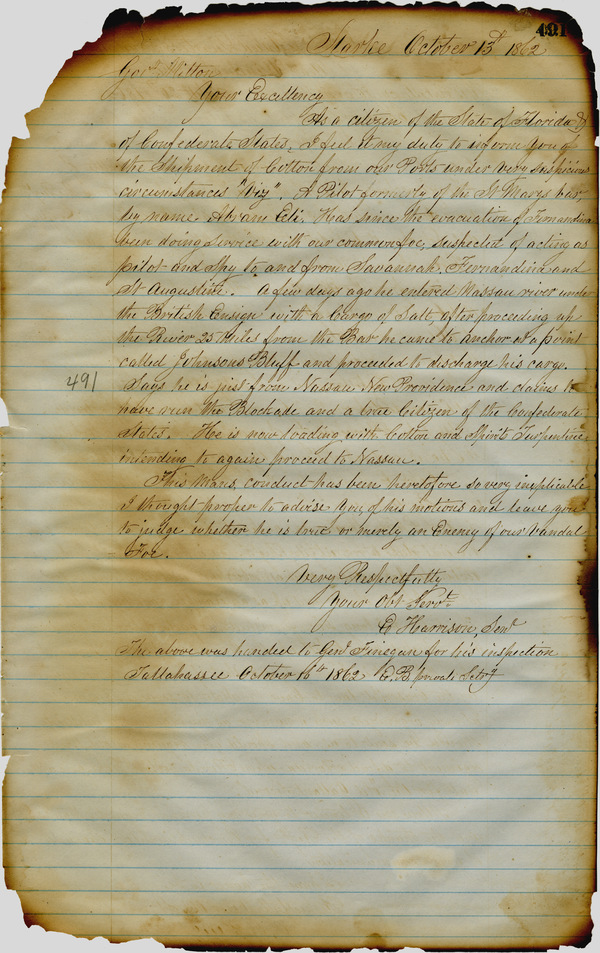 491
Starke October 13th 1862
Govr Milton
Your Excellency
As a citizen of the State of Florida &
of Confederate States, I feel it my duty to inform you of
the Shipment of Cotton from our Ports under very suspicious
circumstances "Vizy". A Pilot formerly of the St Marys bar,
by name Abram Eels, Has since the evacuation of Fernandina
been doing service with our common foe, suspected of acting as
pilot and spy to and from Savannah, Fernandina and
St Augustine. A few days ago he entered Nassau river under
the British Ensign with a Cargo of Salt, after proceeding up
the River 25 Miles from the Bar he came to anchor at a point
called Johnsons Bluff and proceeded to discharge his cargo.
491
Says he is just from Nassau New Providence and claims to
have run the Blockade and a true Citizen of the Confederate
States. Hoe is now loading with Cotton and Spirits Turpentine
intending to again proceed to Nassau.
This Mans, conduct has been heretofore so very
I thought proper to advise you of his motions and leave you
to judge whether he is true or merely an Enemy of our Vandal
Foe.
Very Respectfully
Your Obt Servt
Harrison, Senr
The above was handed to Genl Finegan for his inspection
Tallahassee October 16th 1862 private Secty